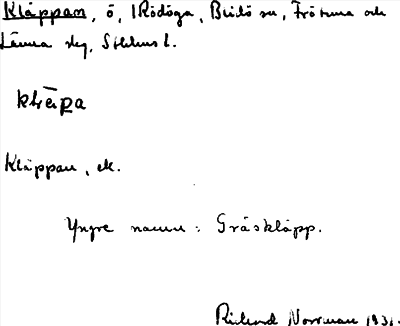 Kläppan, ö, i Rödöga, Blidö sn, Frötuna och
Länna slg, Sthlms l.
Kläppan, ek.
Yngre namn: Gråskläpp.
Rickard Norrman 1931.